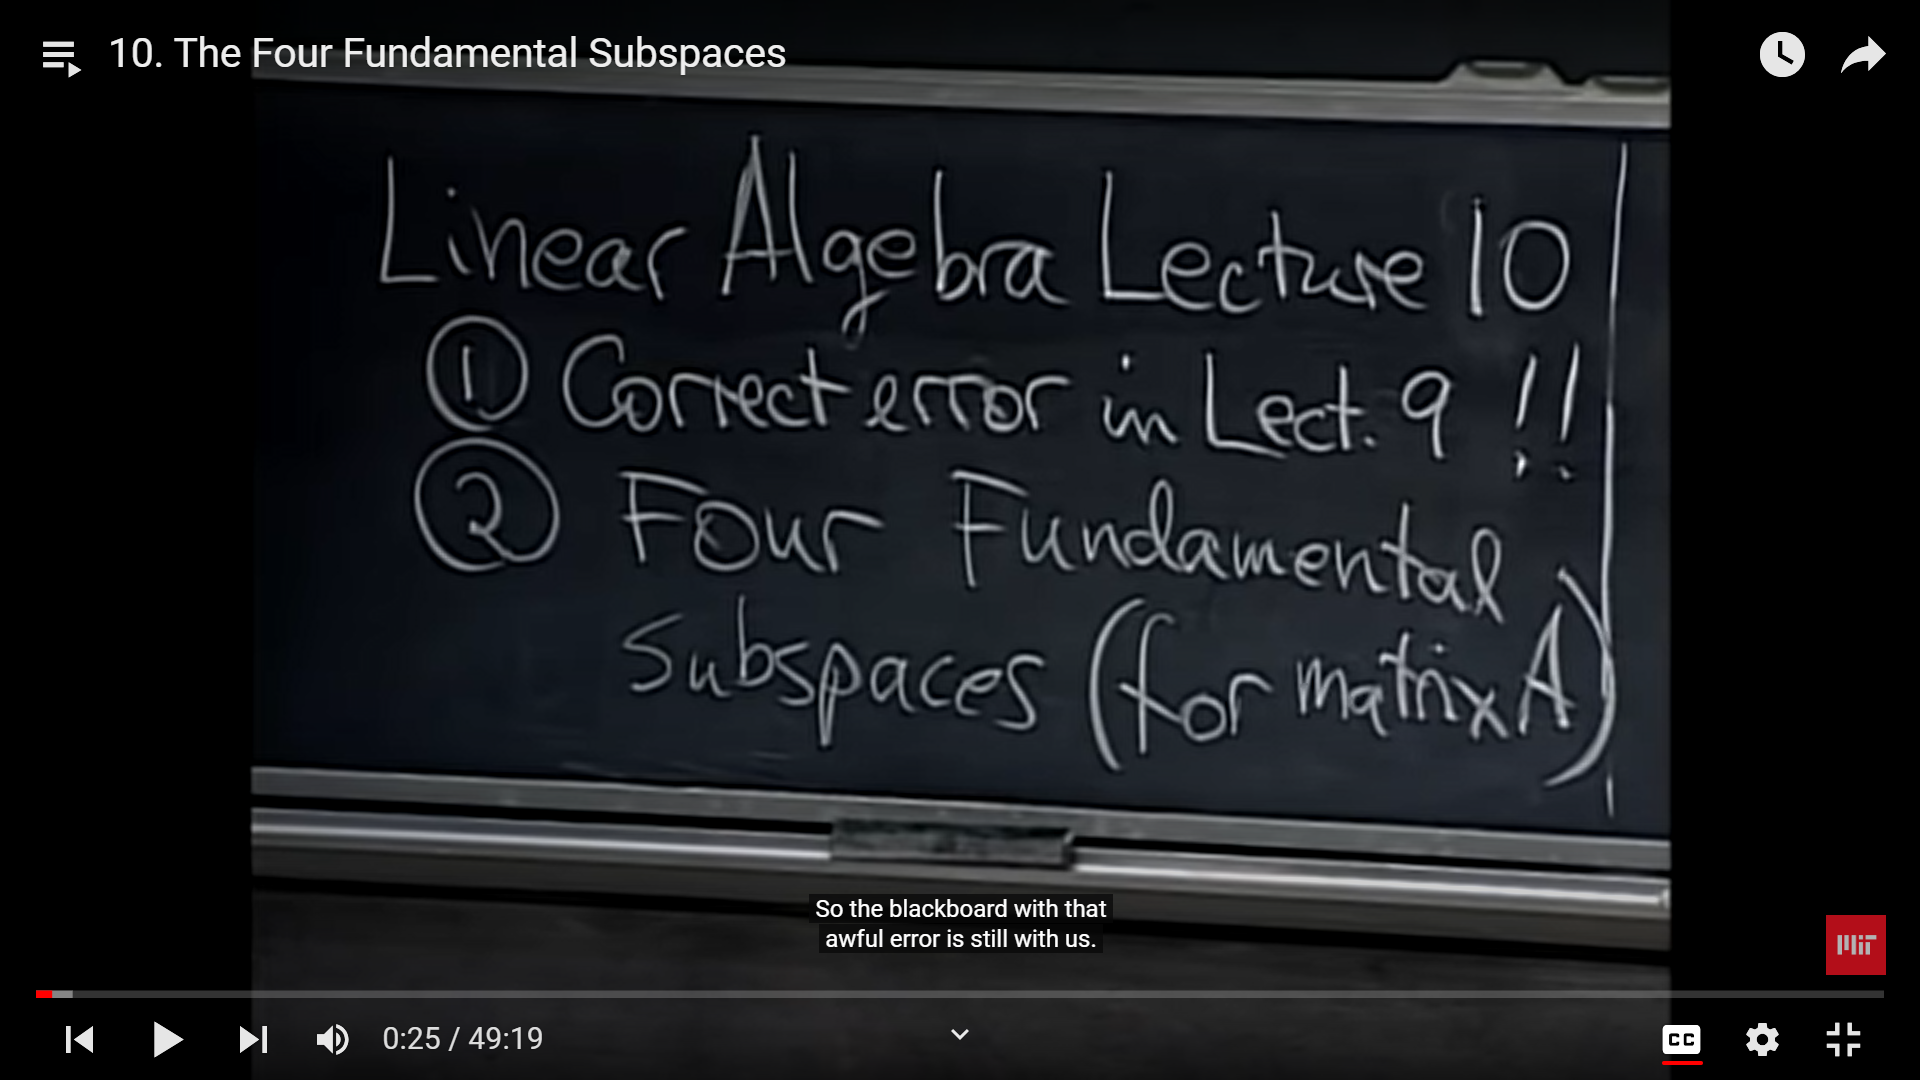 10. The Four Fundamental Subspaces
Linear Algebra Lecture 10
① Correct error in Lect. 9 !!
② Four Fundamental
Subspaces (for matrix A)
So the blackboard with that
awful error is still with us.
MIT
0:25 / 49:19
CC